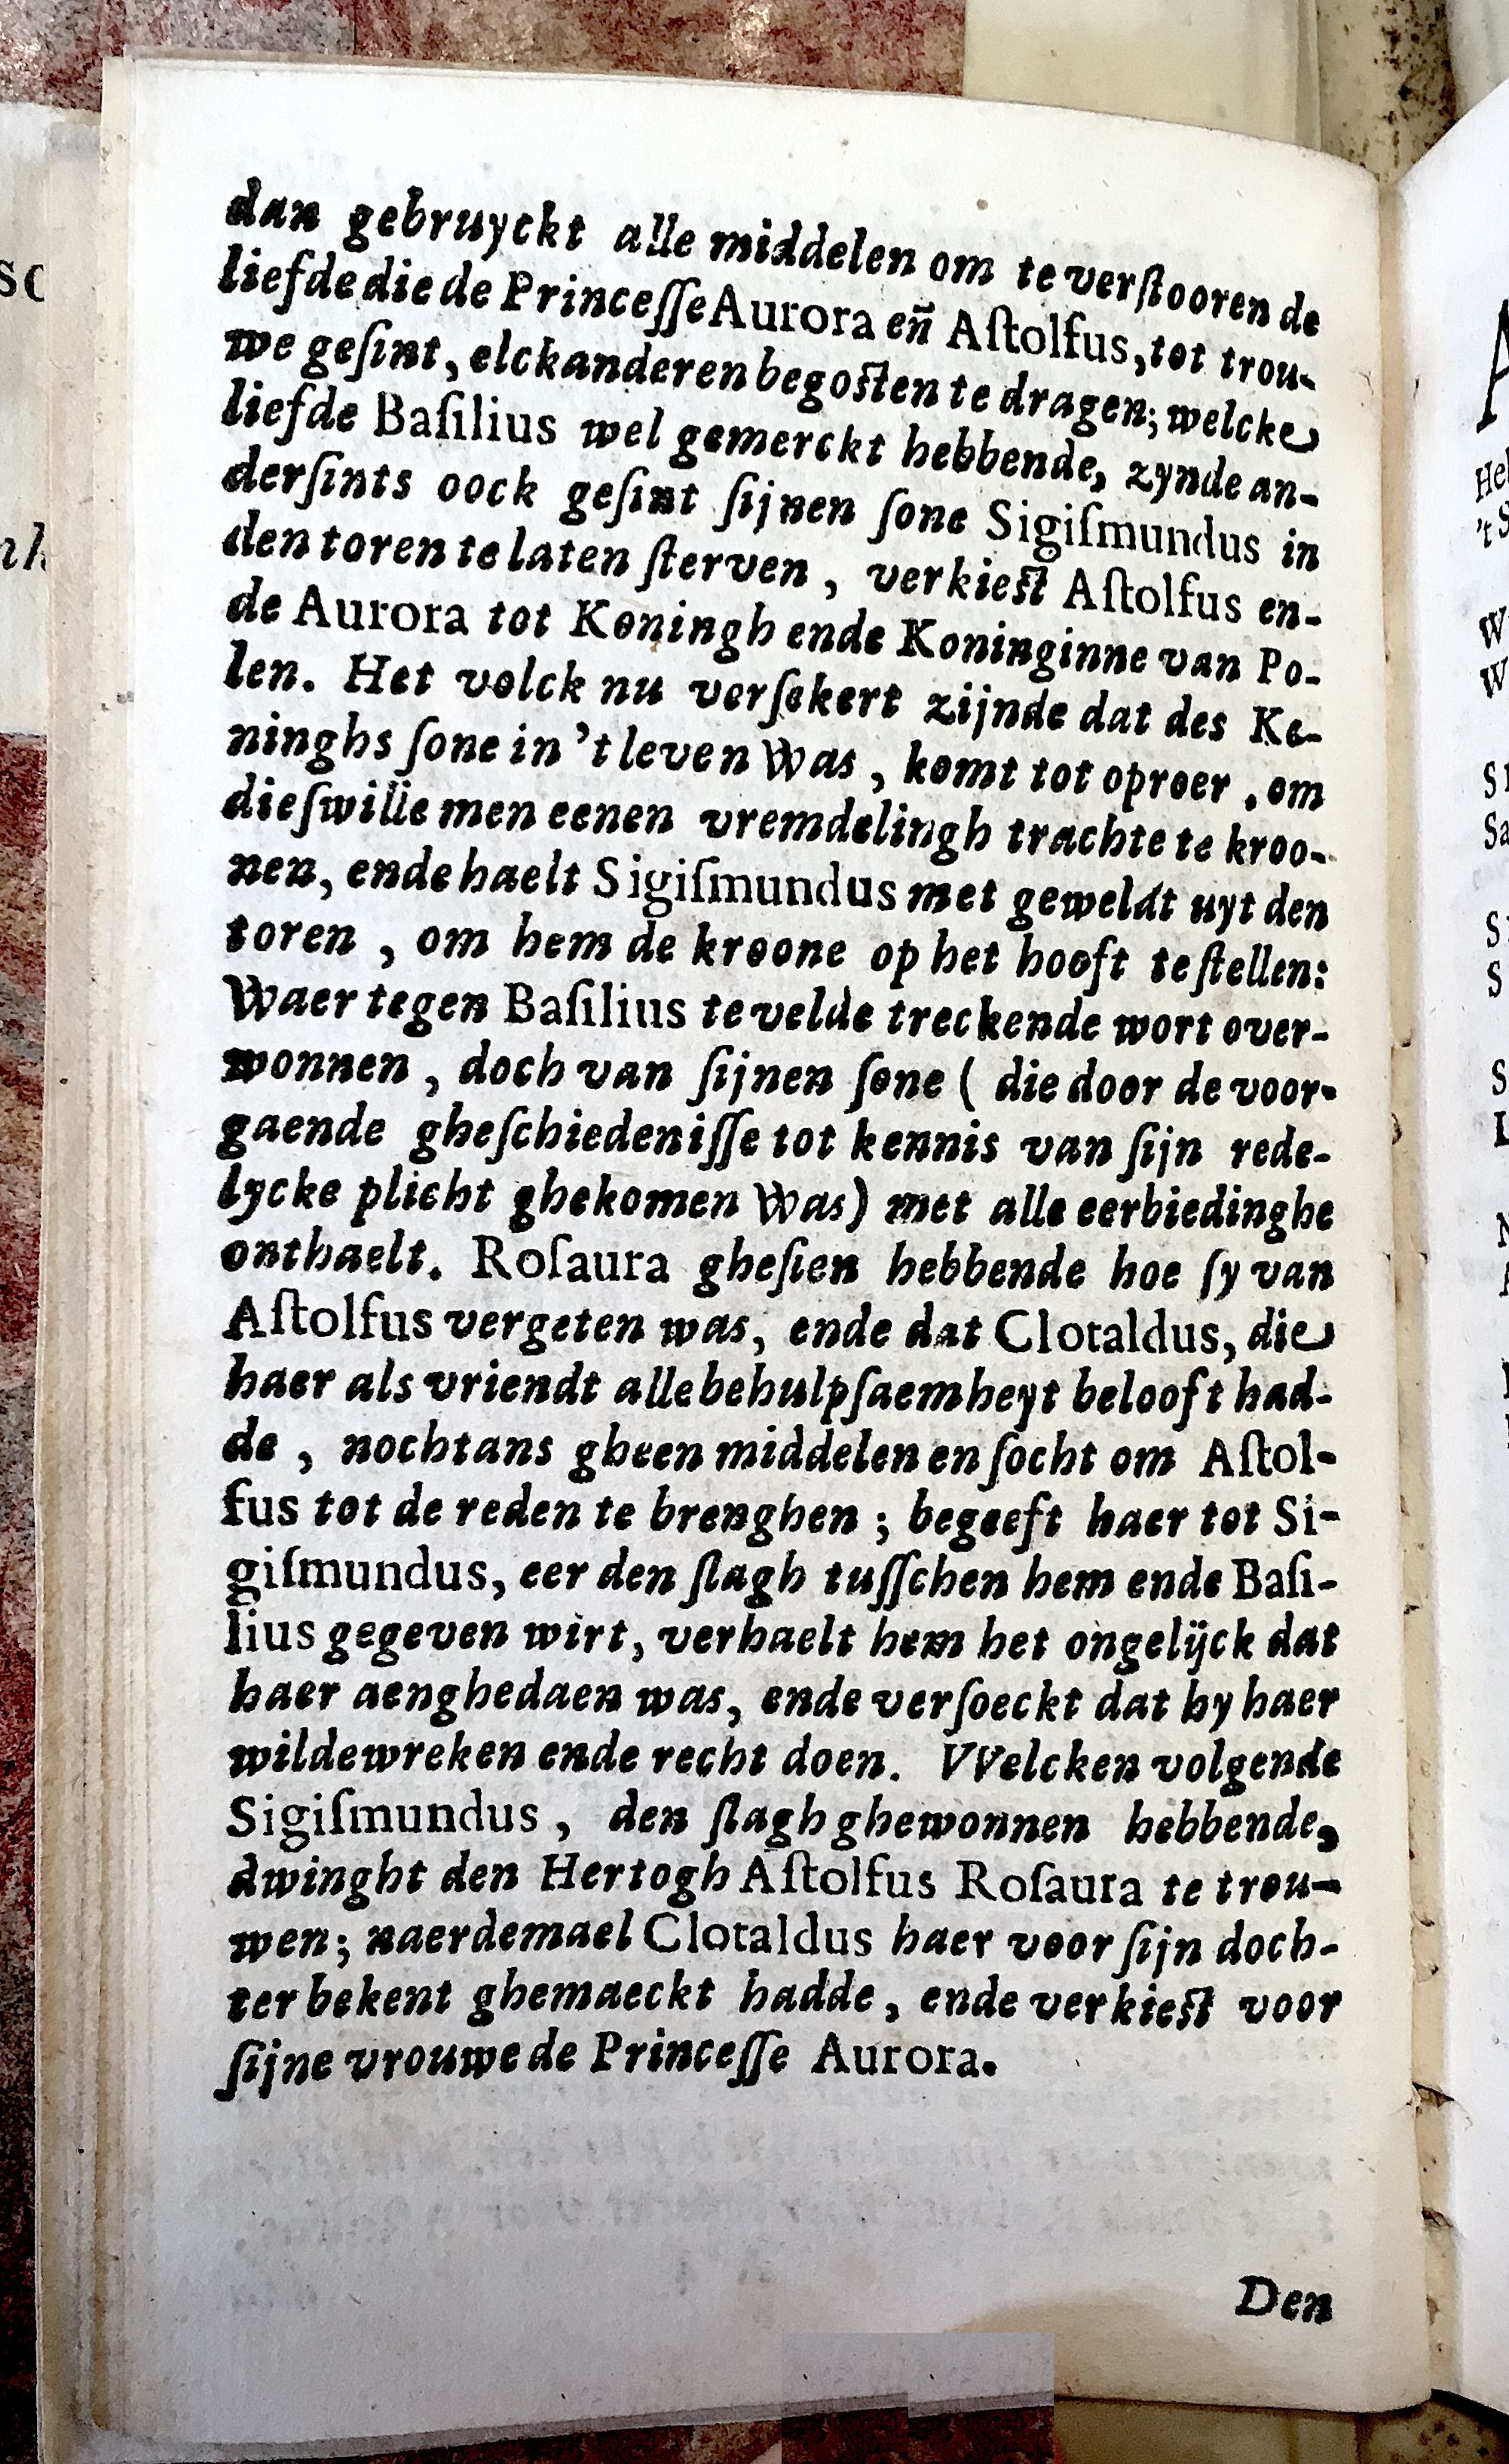 dan gebruyckt alle middelen om te verſtooren de
liefde die de Princeſſe Aurora eñ Aſtolfus, tot trou-
we geſint, elckanderen begosten te dragen; welcke
liefde Baſilius wel gemerckt hebbende, zynde an-
derſints oock geſint ſijnen ſone Sigiſmundus in
den toren te laten ſterven, verkiest Aſtolfus en-
de Aurora tot Koningh ende Koninginne van Po-
len. Het volck nu verſekert zijnde dat des Ko-
ninghs ſone in 't leven Was, komt tot oproer, om
dieſwille men eenen vremdelingh trachte te kroo-
nen, ende haelt Sigiſmundus met geweldt uyt den
toren, om hem de kroone op het hooft te ſtellen:
Waer tegen Baſilius te velde treckende wort over-
wonnen, doch van ſijnen ſone ( die door de voor-
gaende gheſchiedeniſſe tot kennis van ſijn rede-
lycke plicht ghekomen Was) met alle eerbiedinghe
onthaelt. Roſaura gheſien hebbende hoe ſy van
Aſtolfus vergeten was, ende dat Clotaldus, die
haer als vriendt alle behulpſaemheyt belooft had-
de, nochtans gheen middelen en ſocht om Aſtol-
fus tot de reden te brenghen; begeeft haer tot Si-
giſmundus, eer den ſlagh tuſſchen hem ende Baſi-
lius gegeven wirt, verhaelt hem het ongelijck dat
haer aenghedaen was, ende verſoeckt dat hy haer
wilde wreken ende recht doen. VVelcken volgende
Sigiſmundus, den ſlagh ghewonnen hebbende,
dwinght den Hertogh Aſtolfus Roſaura te trou-
wen; naerdemael Clotaldus haer voor ſijn doch-
ter bekent ghemaeckt hadde, ende verkiest voor
ſijne vrouwe de Princeſſe Aurora.
Den